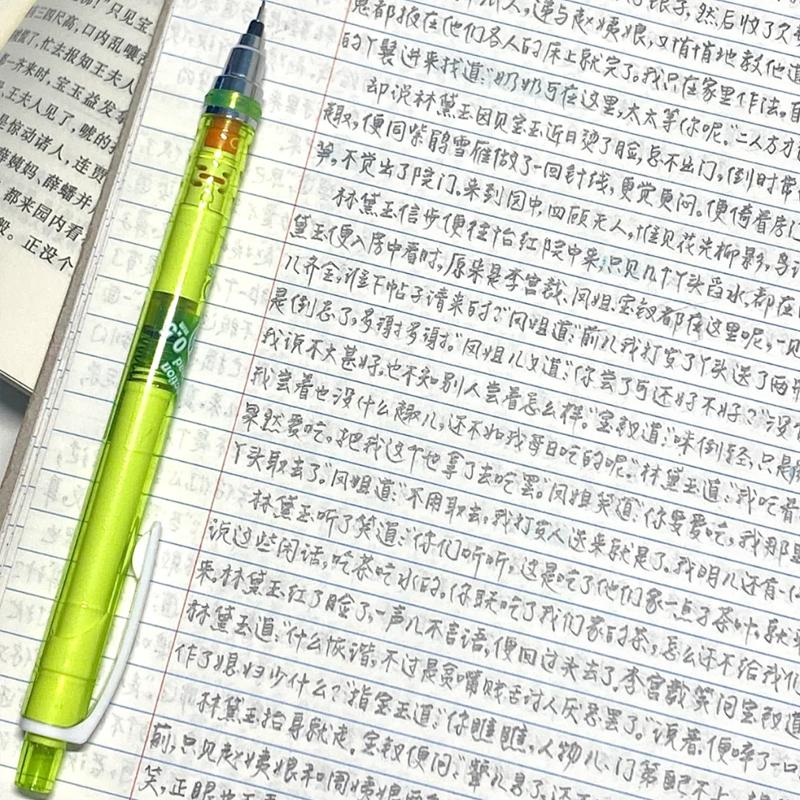 们!”只见宝
三四尺高,口内乱嚷
慌了,忙去报知王夫人
一齐来时,宝玉益发
王夫人见了,唬的
是惊动诸人,连贾
薛姨妈、薛蟠并
都来园内看
般。正没个
0.5
鬼都掖在他们各人的床上就完了。我只在家里作法,
的丫鬟进来找道:“奶奶可在这里,太太等你呢。”二人方才
却说林黛玉因见宝玉近日烫了脸,总不出门,倒时常
趣,便同紫鹃雪雁做了一回针线,更觉更闷。便倚着房
笋,不觉出了院门。来到园中,四顾无人,惟见花光柳影,鸟语
林黛玉信步便往怡红院中来,只见几个丫头舀水,都在
黛玉便入房中看时,原来是李宫裁、凤姐、宝钗都在这里呢,一见
儿齐全,谁下帖子请来的?”凤姐道:“前儿我打发了丫头送了两
是倒忘了,多谢多谢。”凤姐儿又道:“你尝了可还好不好?”没
我说不大甚好,也不知别人尝着怎么样。”宝钗道:“味倒轻,只是
我尝着也没什么趣儿,还不如我每日吃的呢。”林黛玉道:“我吃着
果然爱吃,把我这个也拿了去吃罢。”凤姐笑道:“你要爱吃,我那里
丫头取去了。”凤姐道:“不用取去,我打发人送来就是了。我明儿还有一
林黛玉听了笑道:“你们听听,这是吃了他们家一点子茶叶,就来
诉这些闲话,吃茶吃水的。你既吃了我们家的茶,怎么还不给我们
来。林黛玉红了脸,一声儿不言语,便回过头去了。李宫裁笑向宝钗道
林黛玉道:“什么诙谐,不过是贫嘴贱舌讨人厌恶罢了。”说着便啐了一口
作了媳妇少什么?”指宝玉道:“你瞧瞧,人物儿、门第配不上
林黛玉抬身就走。宝钗便叫:“颦儿急了,还不
前,只见赵姨娘和周姨娘